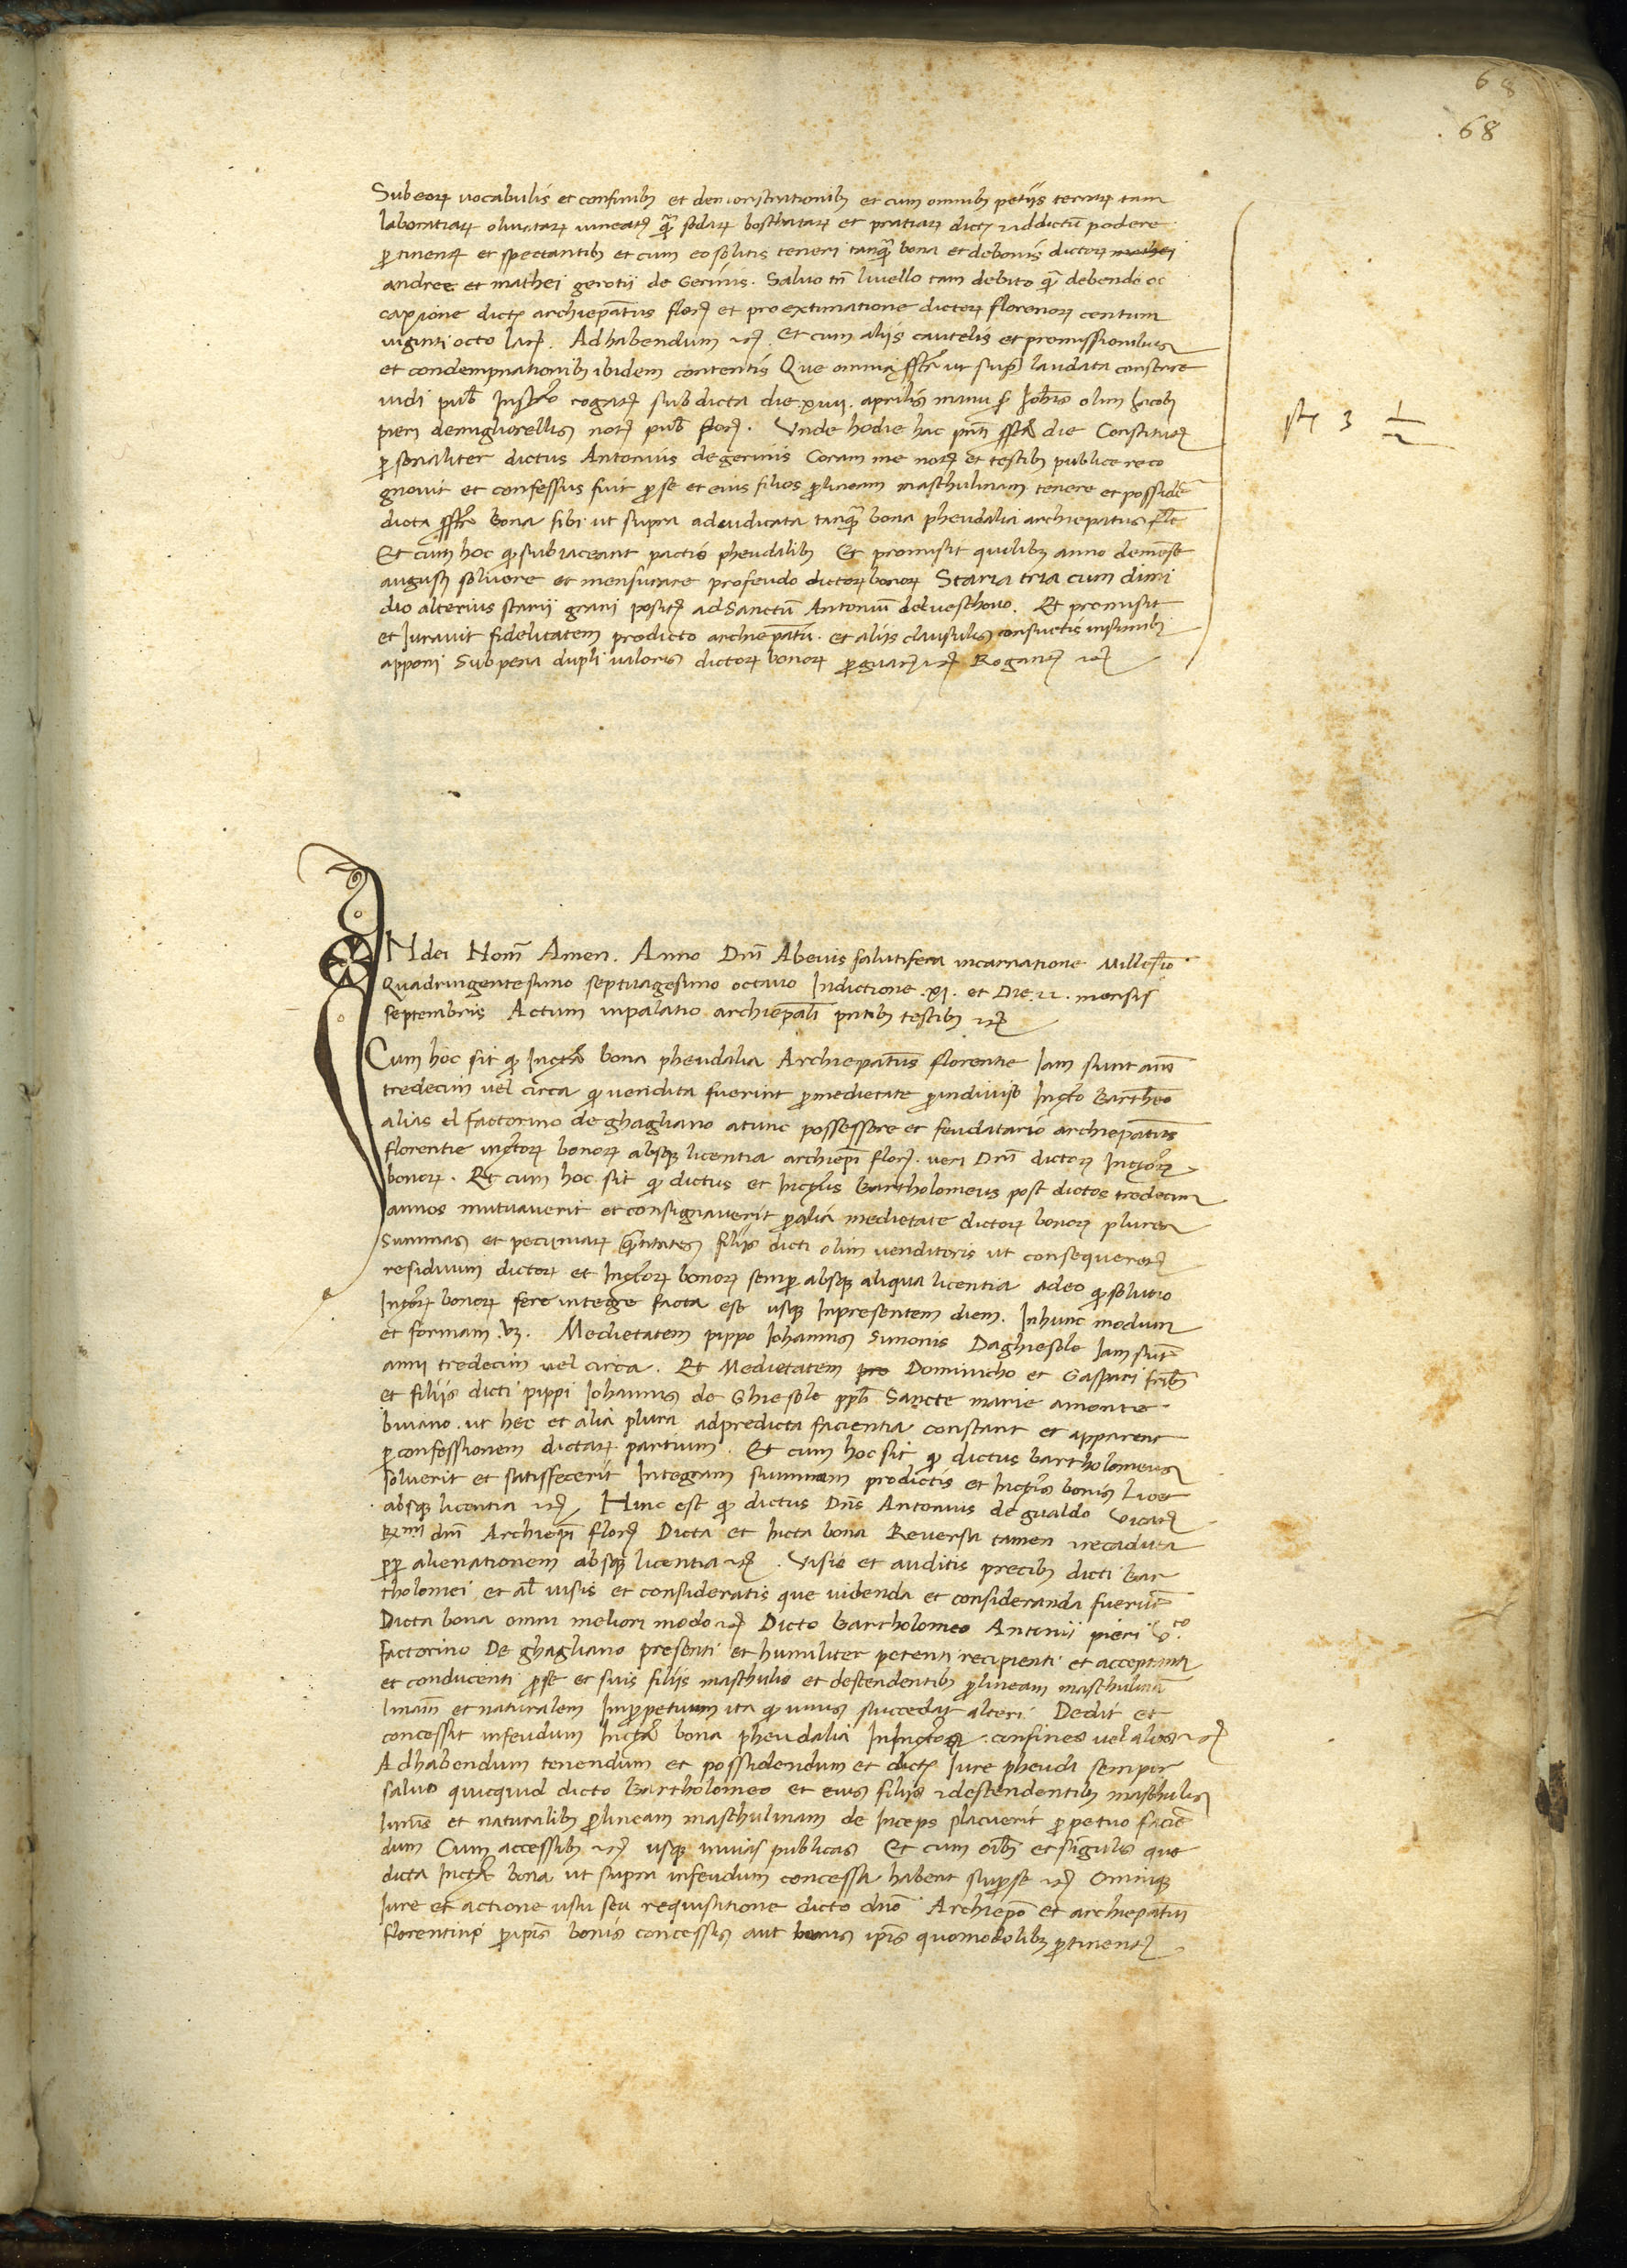 68
68
Sub eoꝝ vocabulis et confinibꝫ et demonstrationibꝫ et cum omnibꝫ petiis terraꝝ tam
laboratiaꝝ olivataꝝ vineatꝝ qm̄ sodaꝝ boschataꝝ et pratiaꝝ dict ad dictū podere
ꝑtinentꝝ et spectantibꝫ et cum eo solitis teneri tanqm̄ bona et de bonis dictoꝝ mathei
andree et mathei gerotii de Gerinis. Salvo tn̄ livello tam debito qm̄ debendo oc
caxione dict archiepātus floꝝ et pro extimatione dictoꝝ florenoꝝ centum
viginti octo laꝝ. Ad habendum etc. Et cum aliis cautelis et promissionibus
et condempnationibꝫ ibidem contentis Que omnia ut supͣ laudata constare
vidi pub̄ Inst̄ro rogatꝝ sub dicta die xviii. aprilis manu s̄ Joh̄is olim Jacobi
pieri de migliorellis notꝝ pub̄ floꝝ. Unde hodie hac p̄nti die Constitutꝰ
ꝑsonaliter dictus Antonius de gerinis Coram me notꝝ et testibꝫ publice reco
gnovit et confessus fuit ꝓ se et eius filios ꝑ lineam maschulinam tenere et possidē
dicta bona sibi ut supra adiudicata tanqm̄ bona pheudalia archiepatus flē
Et cum hoc ꝙ subiaceant pactis pheudalibꝫ Et promisit quolibꝫ anno de mense
augusti solvere et mensurare pro feudo dictoꝝ bonoꝝ Staria tria cum dimi
dio alterius starii grani positꝝ ad Sanctū Antoniū del veschovo. Et promisit
et Iuravit fidelitatem predicto archiepātū. et aliis clausulis consuetis in similibꝫ
apponi Sub pena dupli valoris dictoꝝ bonoꝝ ꝑ guarꝝ etc Rogantes etc
st 3 1/2
IN dei Nom̄e Amen. Anno Dn̄i Ab eius salutifera incarnatione Millesīo
Quadringentesimo septuagesimo octavo Indictione .xi. et Die .22. mensis
septembris Actum in palatio archiepāli p̄ntibꝫ testibꝫ etc
Cum hoc sit ꝙ bona pheudalia Archiepātus florentie Iam sunt anī
tredecim vel circa ꝙ vendita fuerint ꝓ medietate ꝓ indiviso Barthēo
alias el fattorino de ghagliano a tunc possessore et feudatario archiepātus
florentie bonoꝝ absqꝫ licentia archiepī floꝝ. veri Dn̄i dictoꝝ
bonoꝝ. Et cum hoc sit ꝙ dictus et Bartholomeus post dictos tredecim
annos mutuaverit et consignaverit ꝓ alia medietate dictoꝝ bonoꝝ plures
summas et pecuniaꝝ quantitates filiis dicti olim venditoris ut consequeretꝝ
residuum dictoꝝ et bonoꝝ semꝑ absqꝫ aliqua licentia adeo ꝙ solutio
bonoꝝ fere integre facta est usqꝫ In presentem diem. In hunc modum
et formam .vꝫ. Medietatem pippo Iohannis Simonis Da ghiesole Iam sūt
anni tredecim vel circa. Et Medietatem pro Dominicho et Gaspari fr̄ibꝫ
et filiis dicti pippi Iohannis de Ghiesole pp̄li Sancte marie a monte
buiano. ut hec et alia plura ad predicta facientia constant et apparent
ꝑ confessionem dictaꝝ partium. Et cum hoc sit ꝙ dictus Bartholomeus
solverit et satisfecerit Integram summam predictis et bonis licet
absqꝫ licentia etc, Hinc est ꝙ dictus Dn̄s Antonius de gualdo vicariꝰ
R̄mi dn̄i Archiepī floꝝ Dicta et bona Reversa tamen recaduta
ꝓꝑ alienationem absqꝫ licentia etc. Visis et auditis precibꝫ dicti Bar
tholomei et al̄ visis et consideratis que videnda et consideranda fuerūt
Dicta bona omni meliori modo etc Dicto Bartholomeo Antonii pieri v.to
fattorino De ghagliano presenti et humiliter petenti recipienti et acceptanti
et conducenti ꝓ se et suis filiis maschulis et descendentibꝫ ꝑ lineam maschulinā
l̄imam et naturalem Inꝑpetuum ita ꝙ unus succedat alteri Dedit et
concessit in feudum bona pheudalia confines vel alios etc
Ad habendum tenendum et possidendum et dict Iure pheudi semper
salvo quicquid dicto Bartholomeo et eius filiis et descendentibꝫ maschulis
l̄imis et naturalibꝫ ꝑ lineam maschulinam de Inceps placuerit ꝑpetuo faciē
dum Cum accessibꝫ etc usqꝫ in vias publicas Et cum oībꝫ et singulis que
dicta bona ut supra in feudum concessa habent suꝑ se etc Omniqꝫ
Iure et actione usu seu requisitione dicto dn̄o Archiepō et archiepatui
florentino ꝑ ip̄is bonis concessis aut bonis ip̄is quomodolibꝫ ꝑtinentꝝ